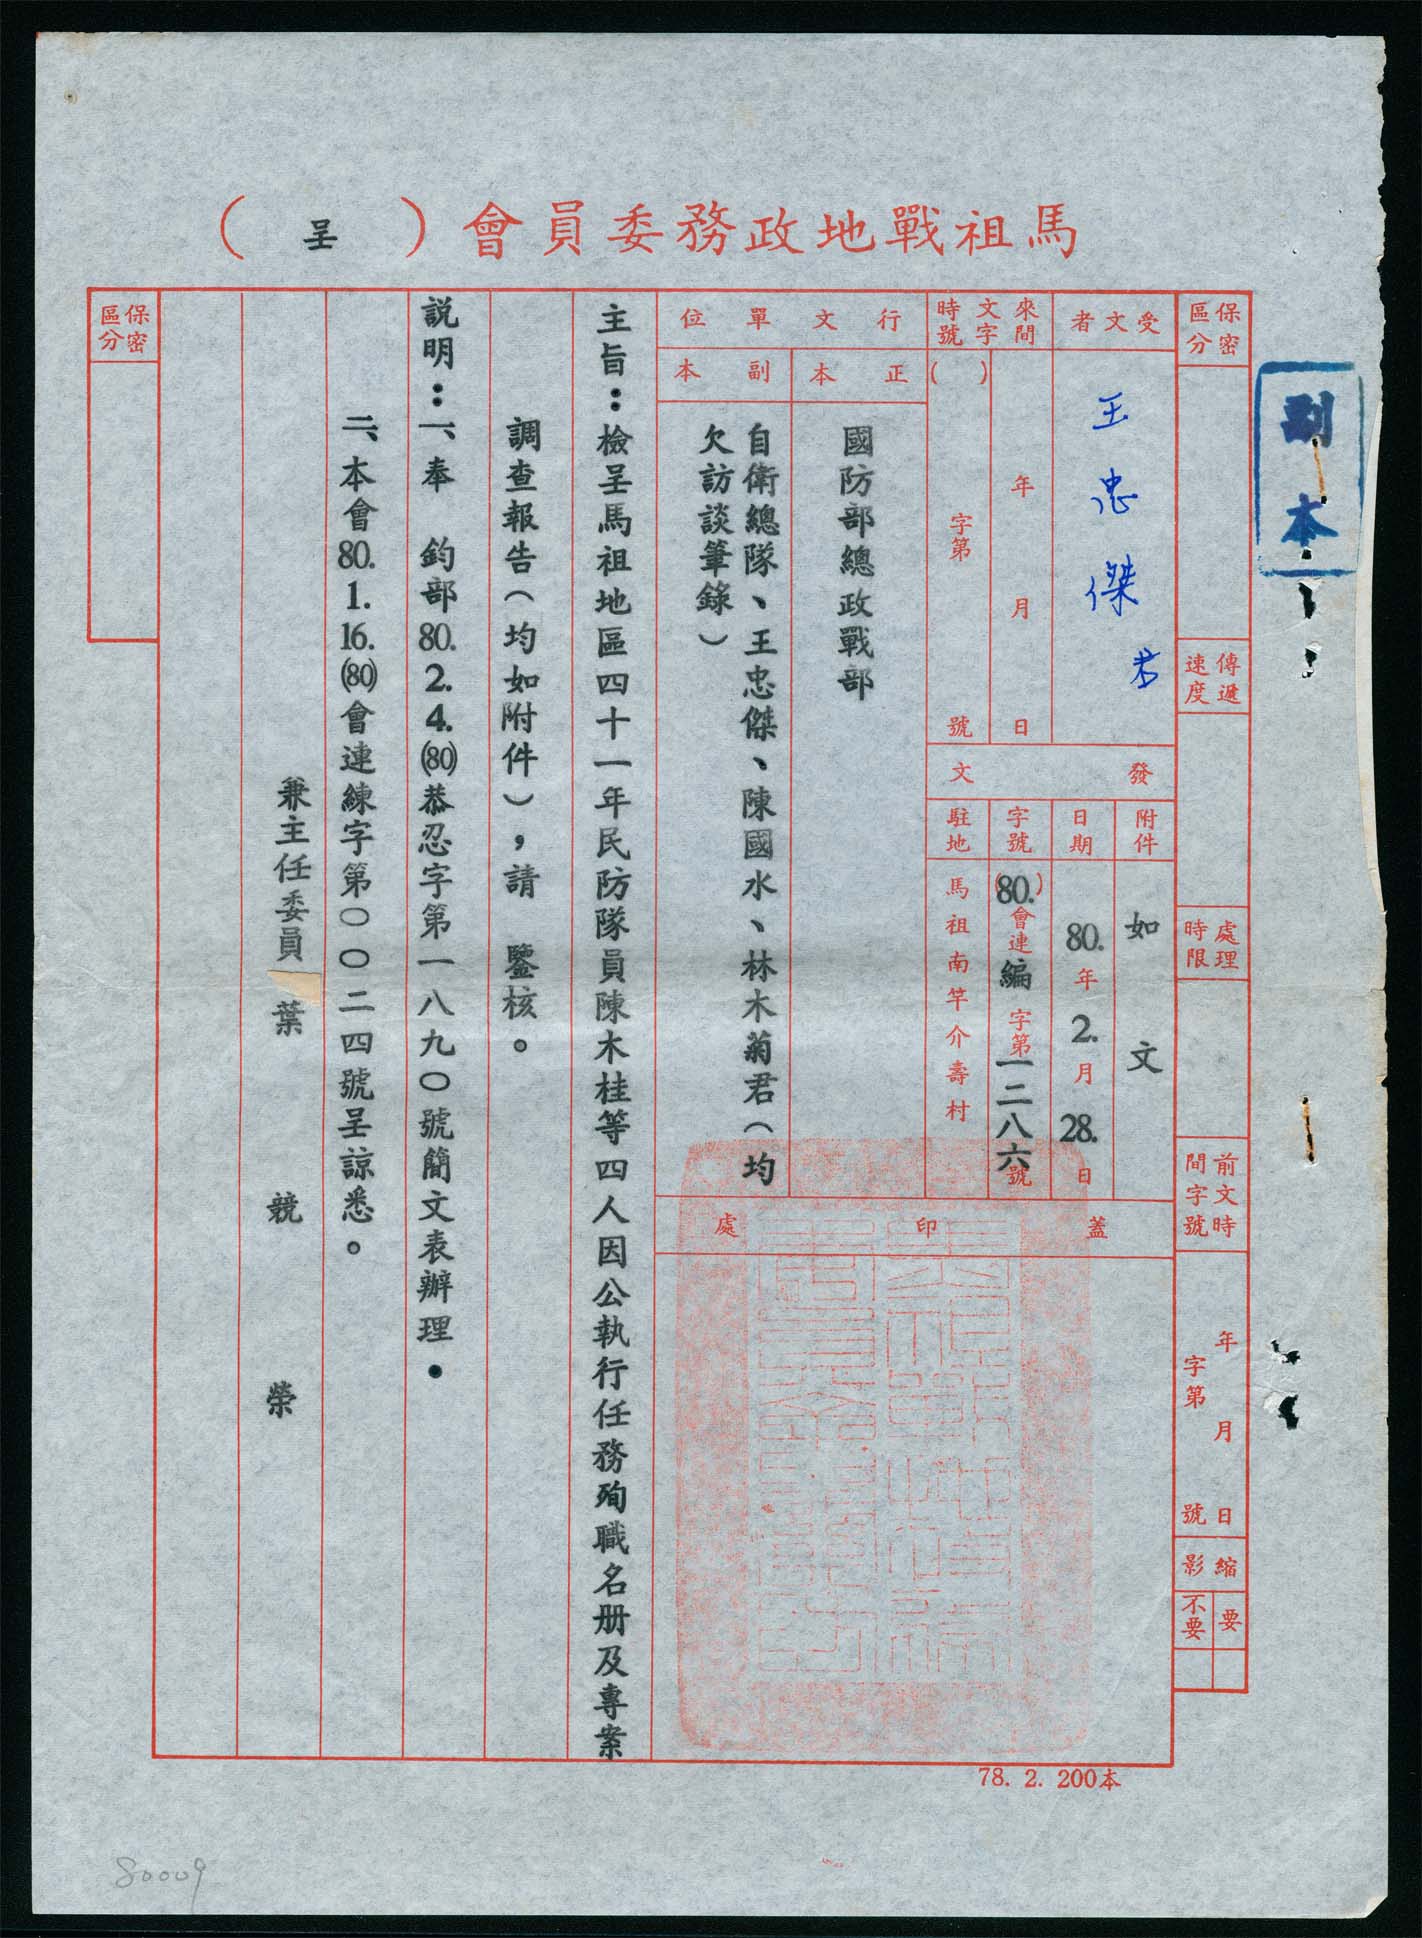 馬祖戰地政務委員會（呈）
副本
保密區分
傳遞速度
處理時限
前文時間字號
年月日
字第號
縮影
要
不要
受文者
王忠傑君
來文時間字號
年月日
（ ）字第號
行文單位
正本
國防部總政戰部
副本
自衛總隊、王忠傑、陳國水、林木菊君（均
欠訪談筆錄）
發文
附件
如文
日期
80.年2.月28.日
字號
(80.)會連編字第一二八六號
駐地
馬祖南竿介壽村
蓋印處
主旨：檢呈馬祖地區四十一年民防隊員陳木桂等四人因公執行任務殉職名册及專案
調查報告（均如附件），請　鑒核。
説明：一、奉　鈞部80.2.4.(80)恭忍字第一八九〇號簡文表辦理。
二、本會80.1.16.(80)會連練字第〇〇二四號呈諒悉。
兼主任委員葉競榮
保密區分
78. 2. 200本
80009